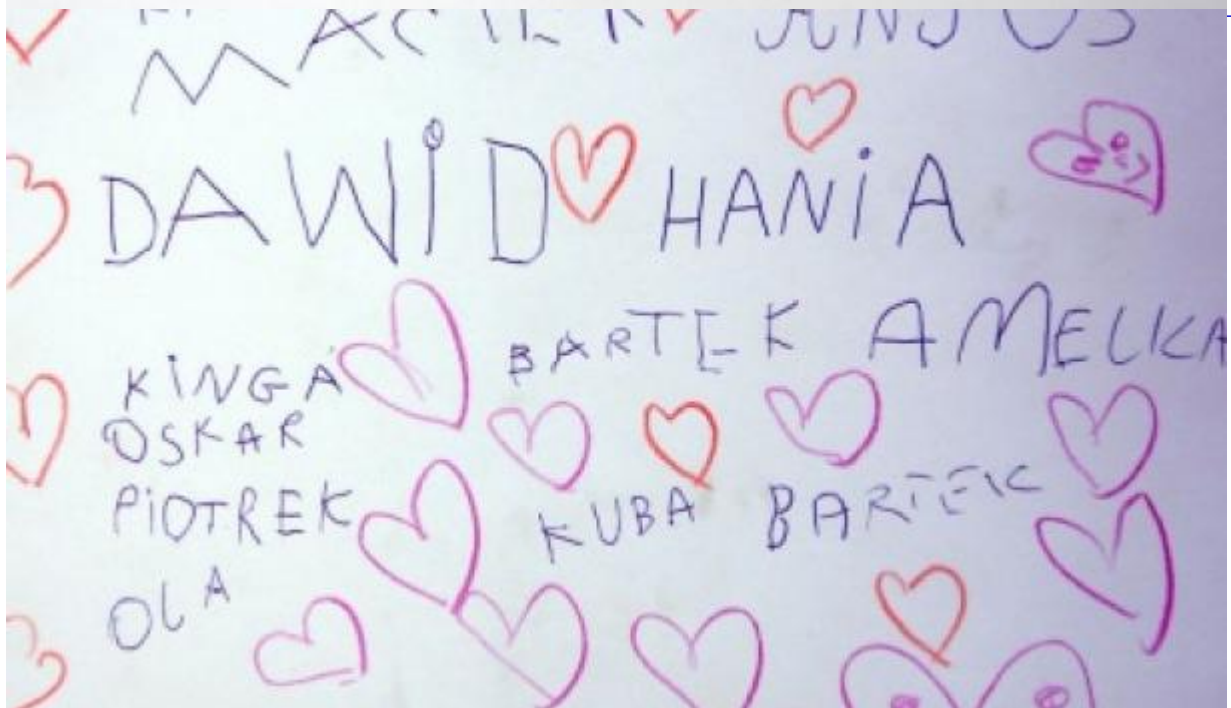 MACIEK
DAWiD HANiA
BARTEK AMELKA
KiNGA
OSKAR
PiOTREK KUBA BARTEK
OLA